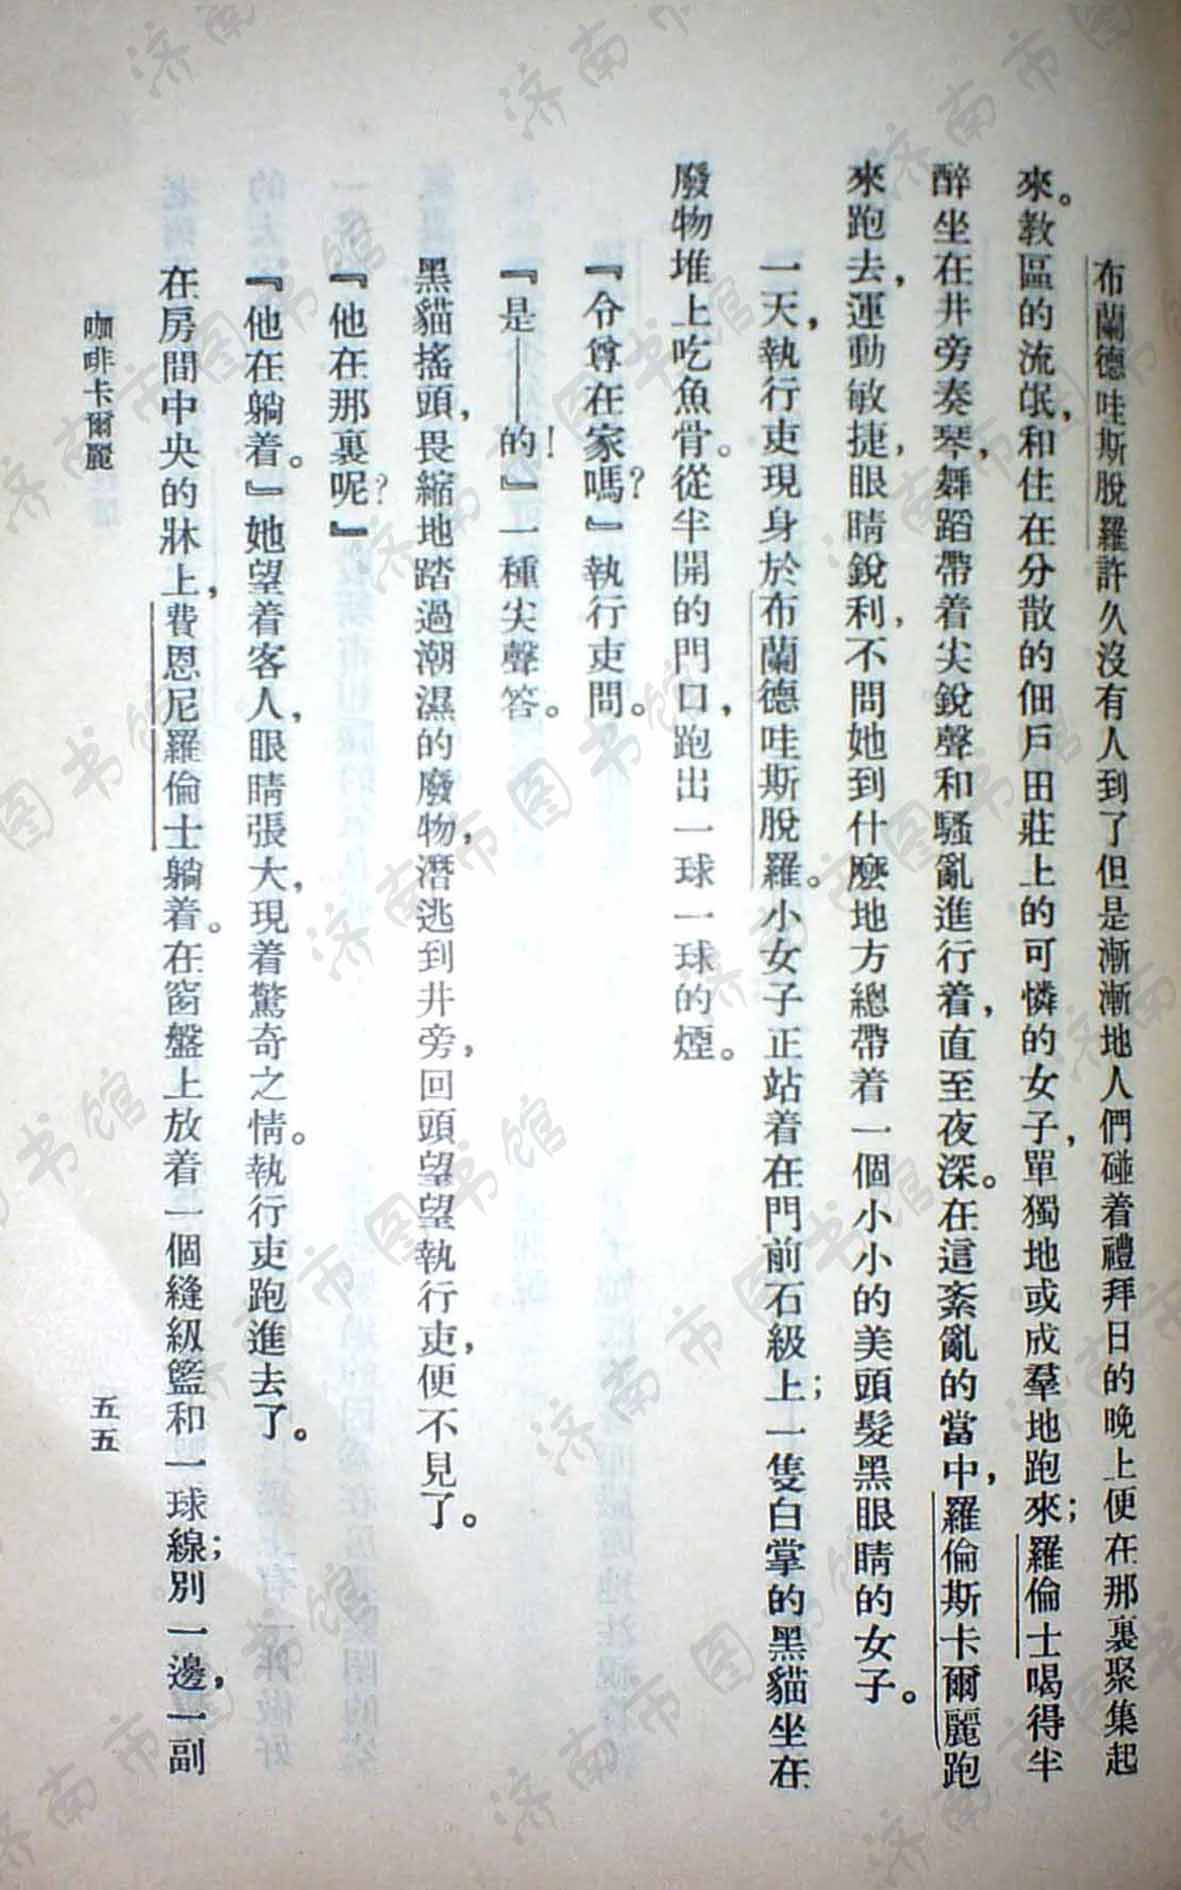 布蘭德哇斯脫羅許久沒有人到了但是漸漸地人們碰着禮拜日的晚上便在那裏聚集起
來。教區的流氓，和住在分散的佃戶田莊上的可憐的女子，單獨地或成羣地跑來；羅倫士喝得半
醉坐在井旁奏琴，舞蹈帶着尖銳聲和騷亂進行着，直至夜深。在這紊亂的當中，羅倫斯卡爾麗跑
來跑去，運動敏捷，眼睛銳利，不問她到什麼地方總帶着一個小小的美頭髮黑眼睛的女子。
一天，執行吏現身於布蘭德哇斯脫羅。小女子正站着在門前石級上；一隻白掌的黑貓坐在
廢物堆上吃魚骨。從半開的門口，跑出一球一球的煙。
『令尊在家嗎？』執行吏問。
『是——的！』一種尖聲答。
黑貓搖頭，畏縮地踏過潮濕的廢物，潛逃到井旁，回頭望望執行吏，便不見了。
『他在那裏呢？』
『他在躺着。』她望着客人，眼睛張大，現着驚奇之情。執行吏跑進去了。
在房間中央的牀上，費恩尼羅倫士躺着。在窗盤上放着一個縫級籃和一球線；別一邊，一副
咖啡卡爾麗
五五
济南市图书馆